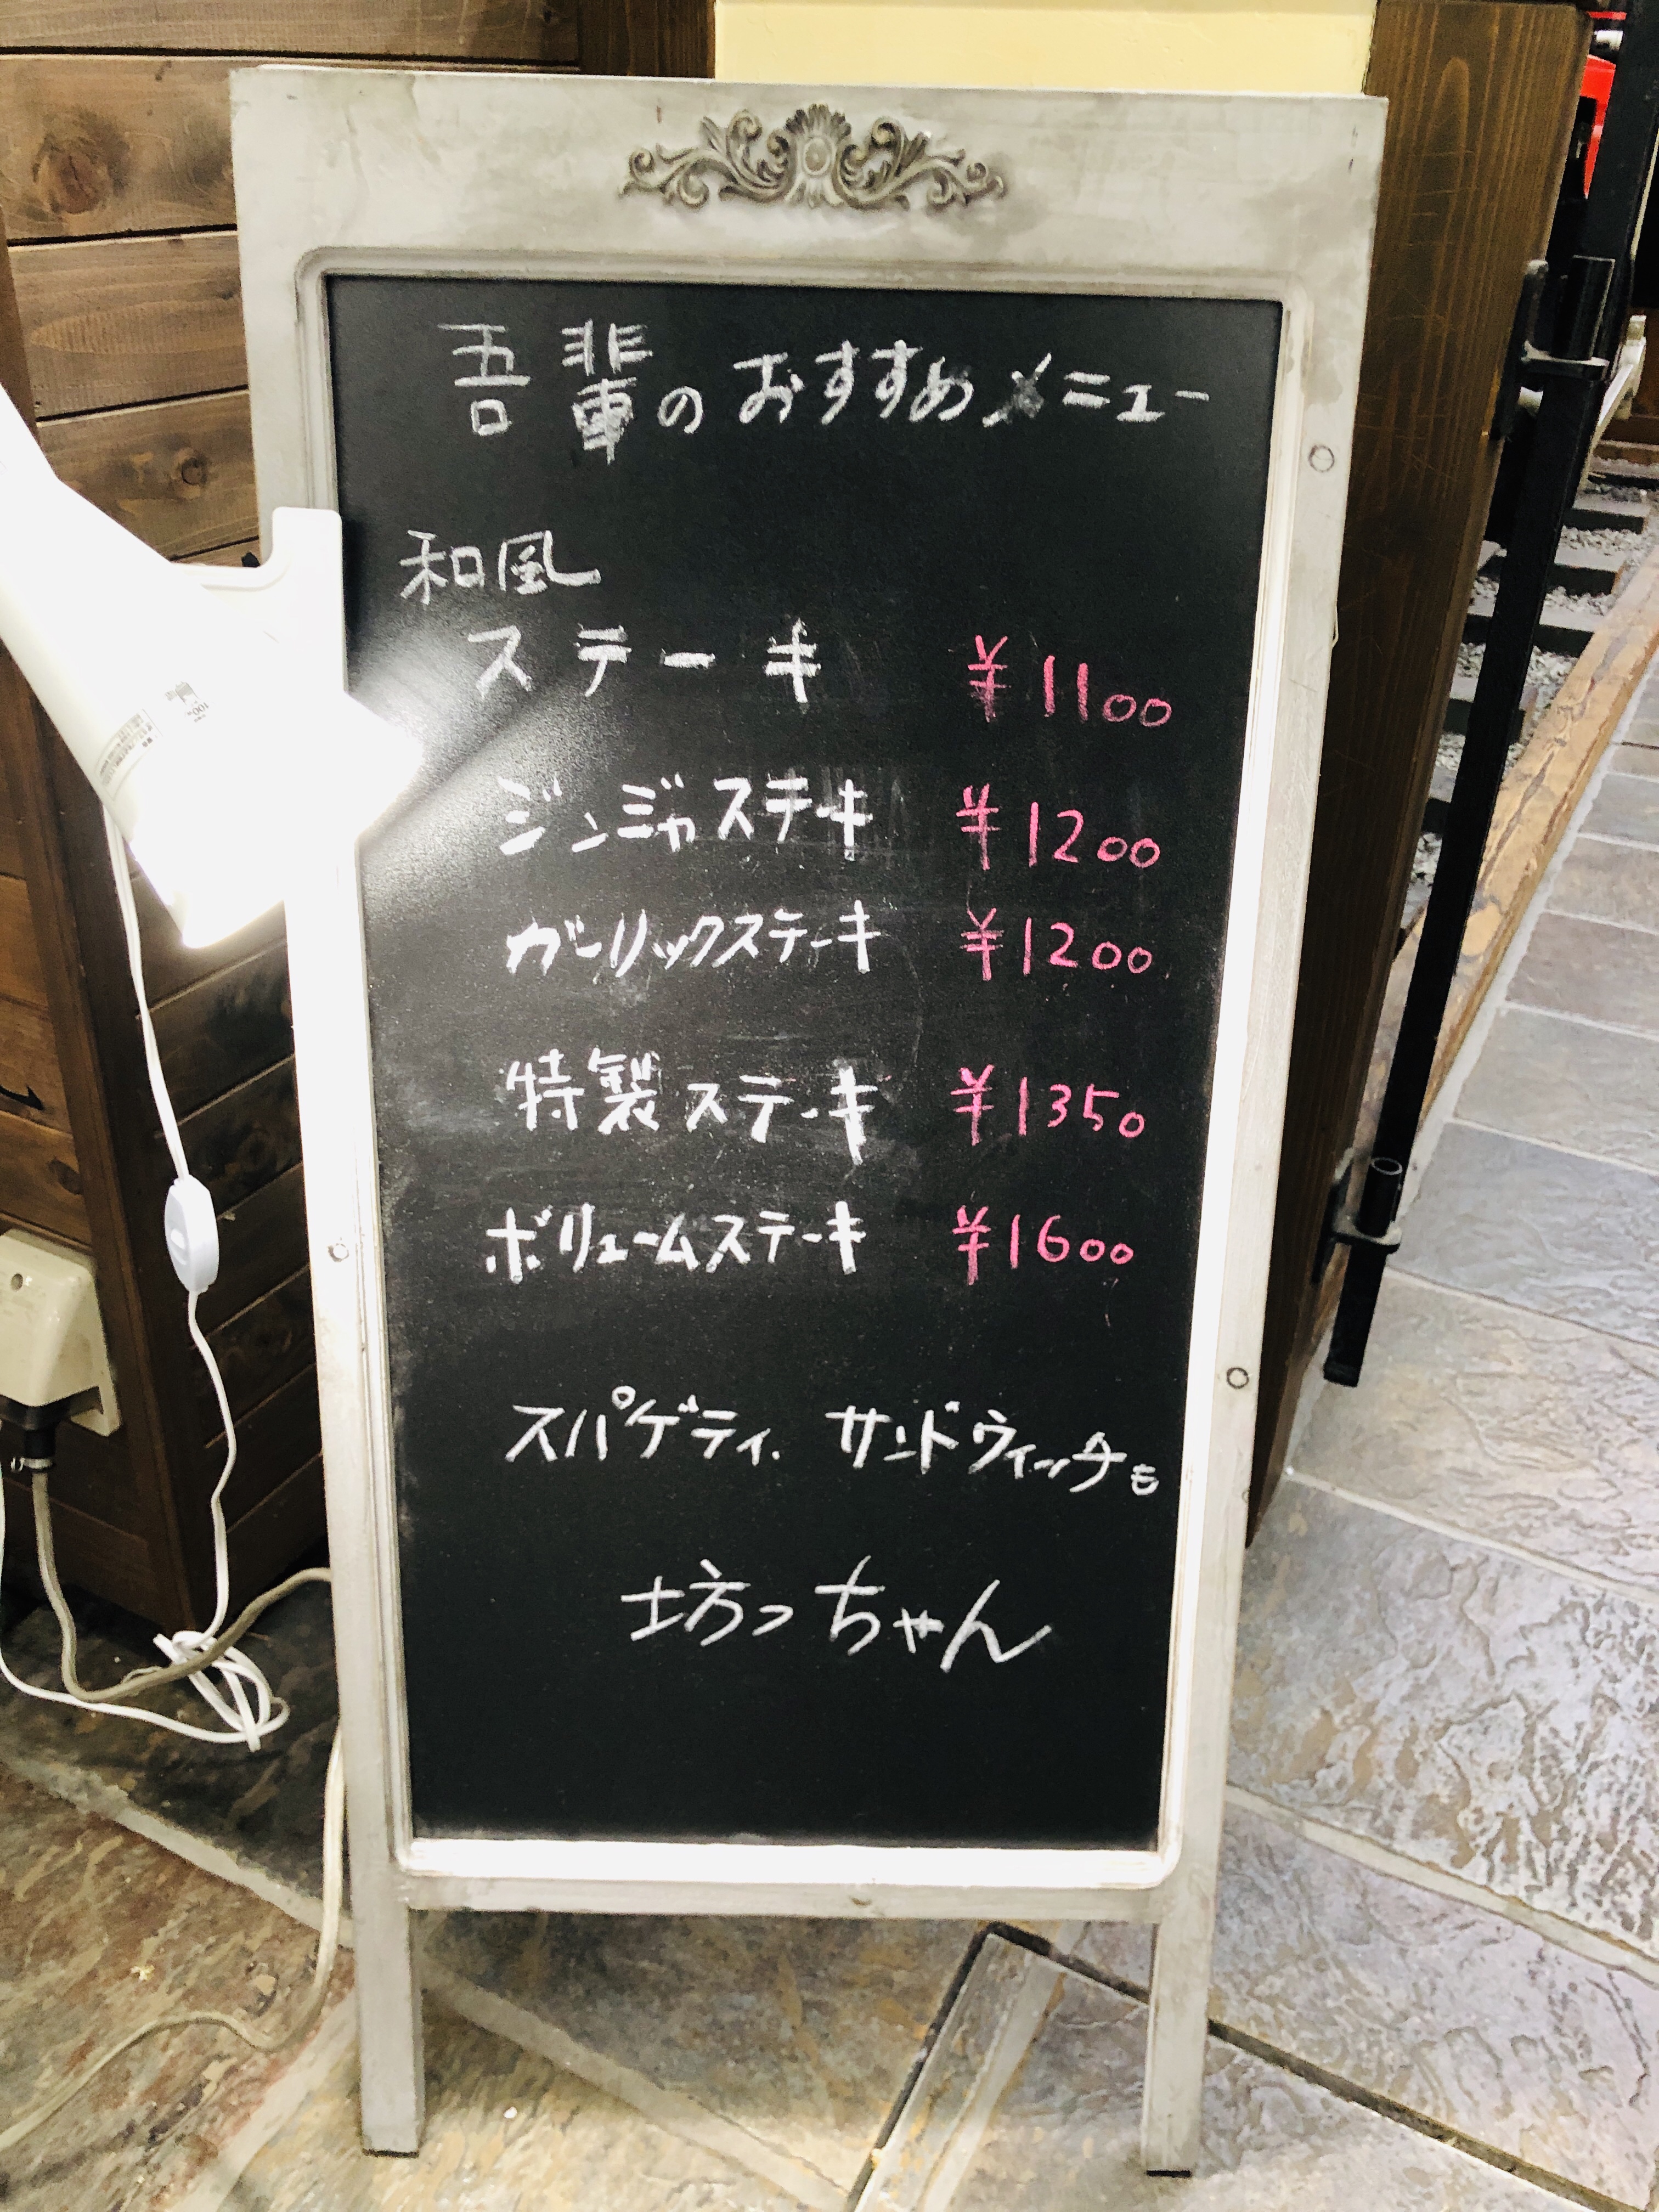 吾輩のおすすめメニュー
和風
ステーキ ¥1100
ジンジャステーキ ¥1200
ガーリックステーキ ¥1200
特製ステーキ ¥1350
ボリュームステーキ ¥1600
スパゲティ. サンドウィッチも
坊っちゃん